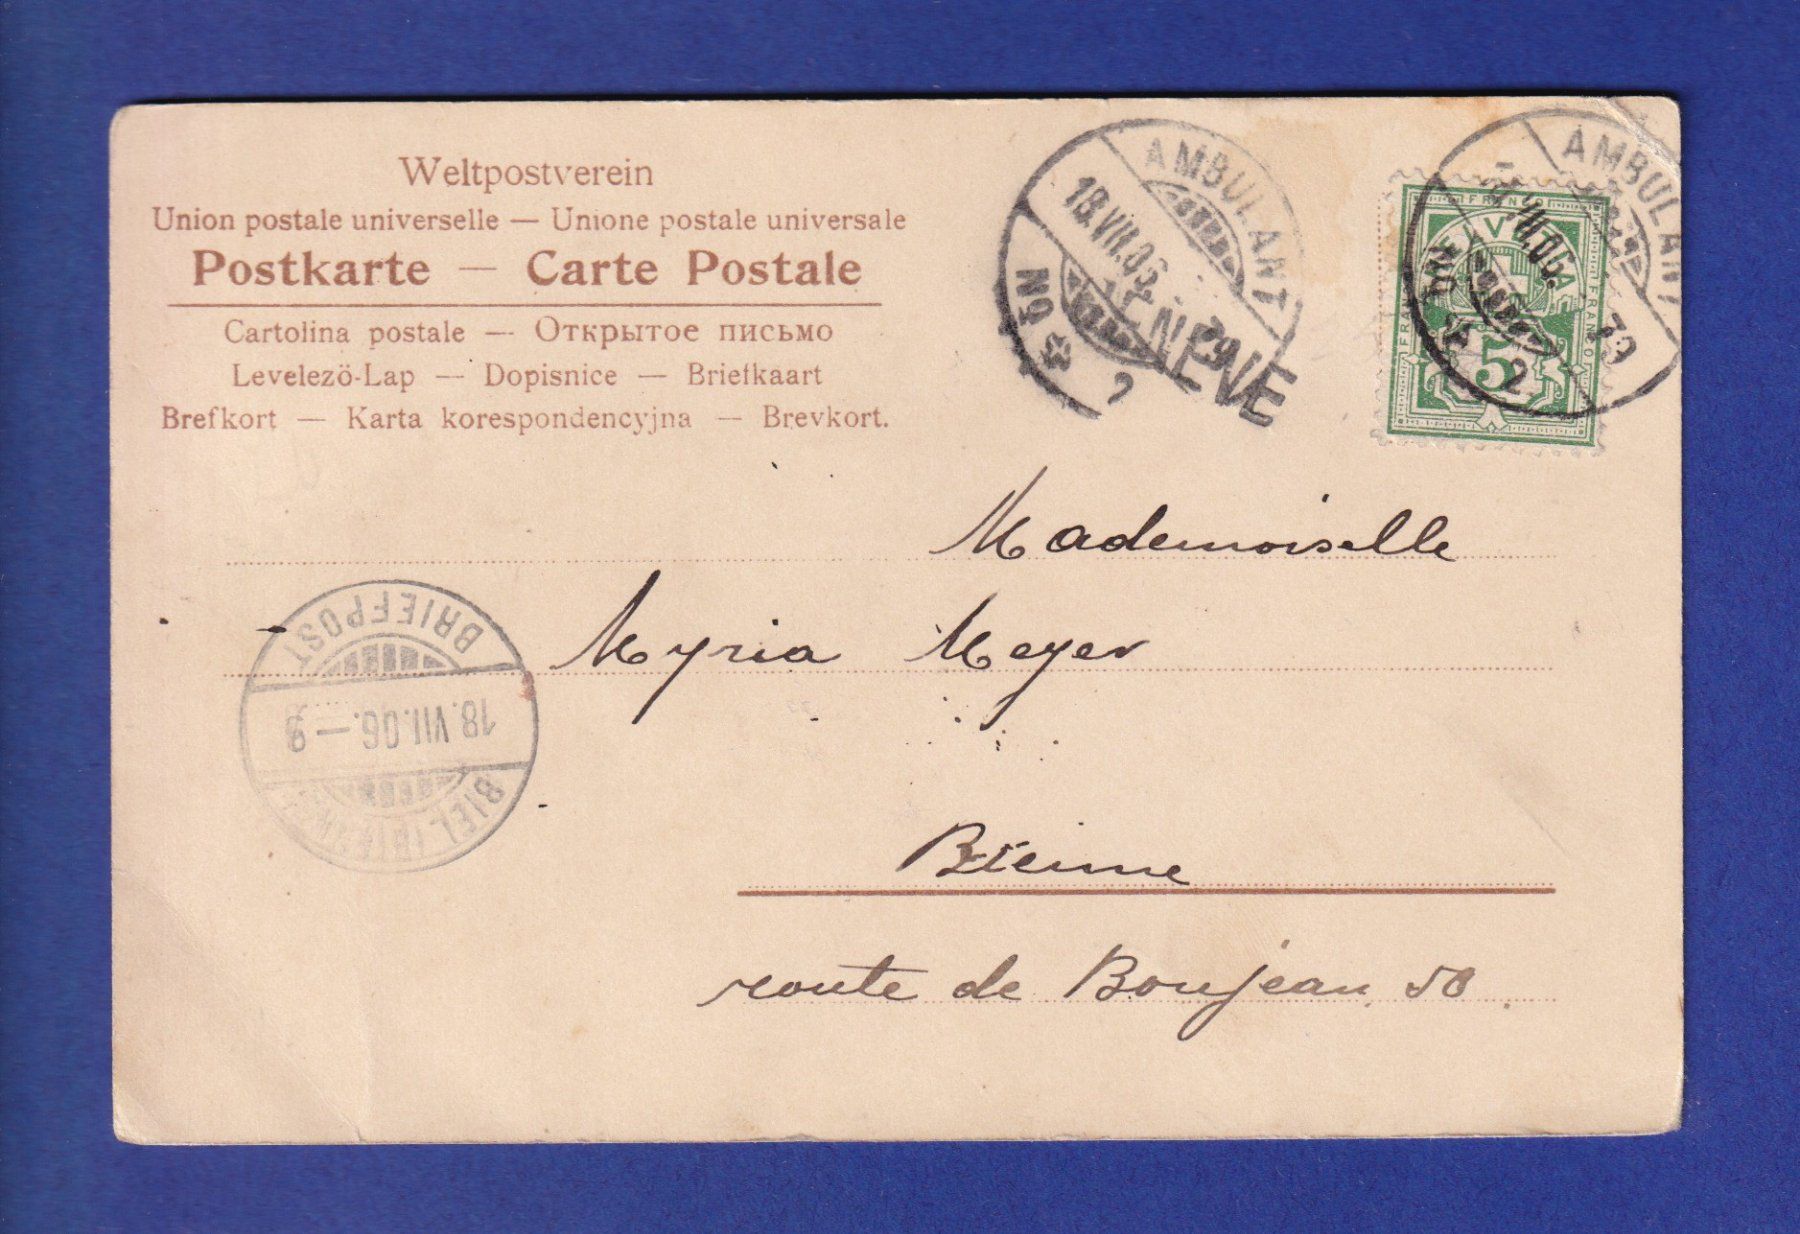 Weltpostverein
Union postale universelle — Unione postale universale
Postkarte — Carte Postale
Cartolina postale — Открытое письмо
Levelező-Lap — Dopisnice — Briefkaart
Brefkort — Karta korespondencyjna — Brevkort.
AMBULANT
18.VII.06
No 2
NEVE
AMBULANT
No 2
79
FRANCO
5
Mademoiselle
Myria Meyer
Bienne
route de Boujean 50.
BRIEFPOST
18.VII.06.—9
BIEL